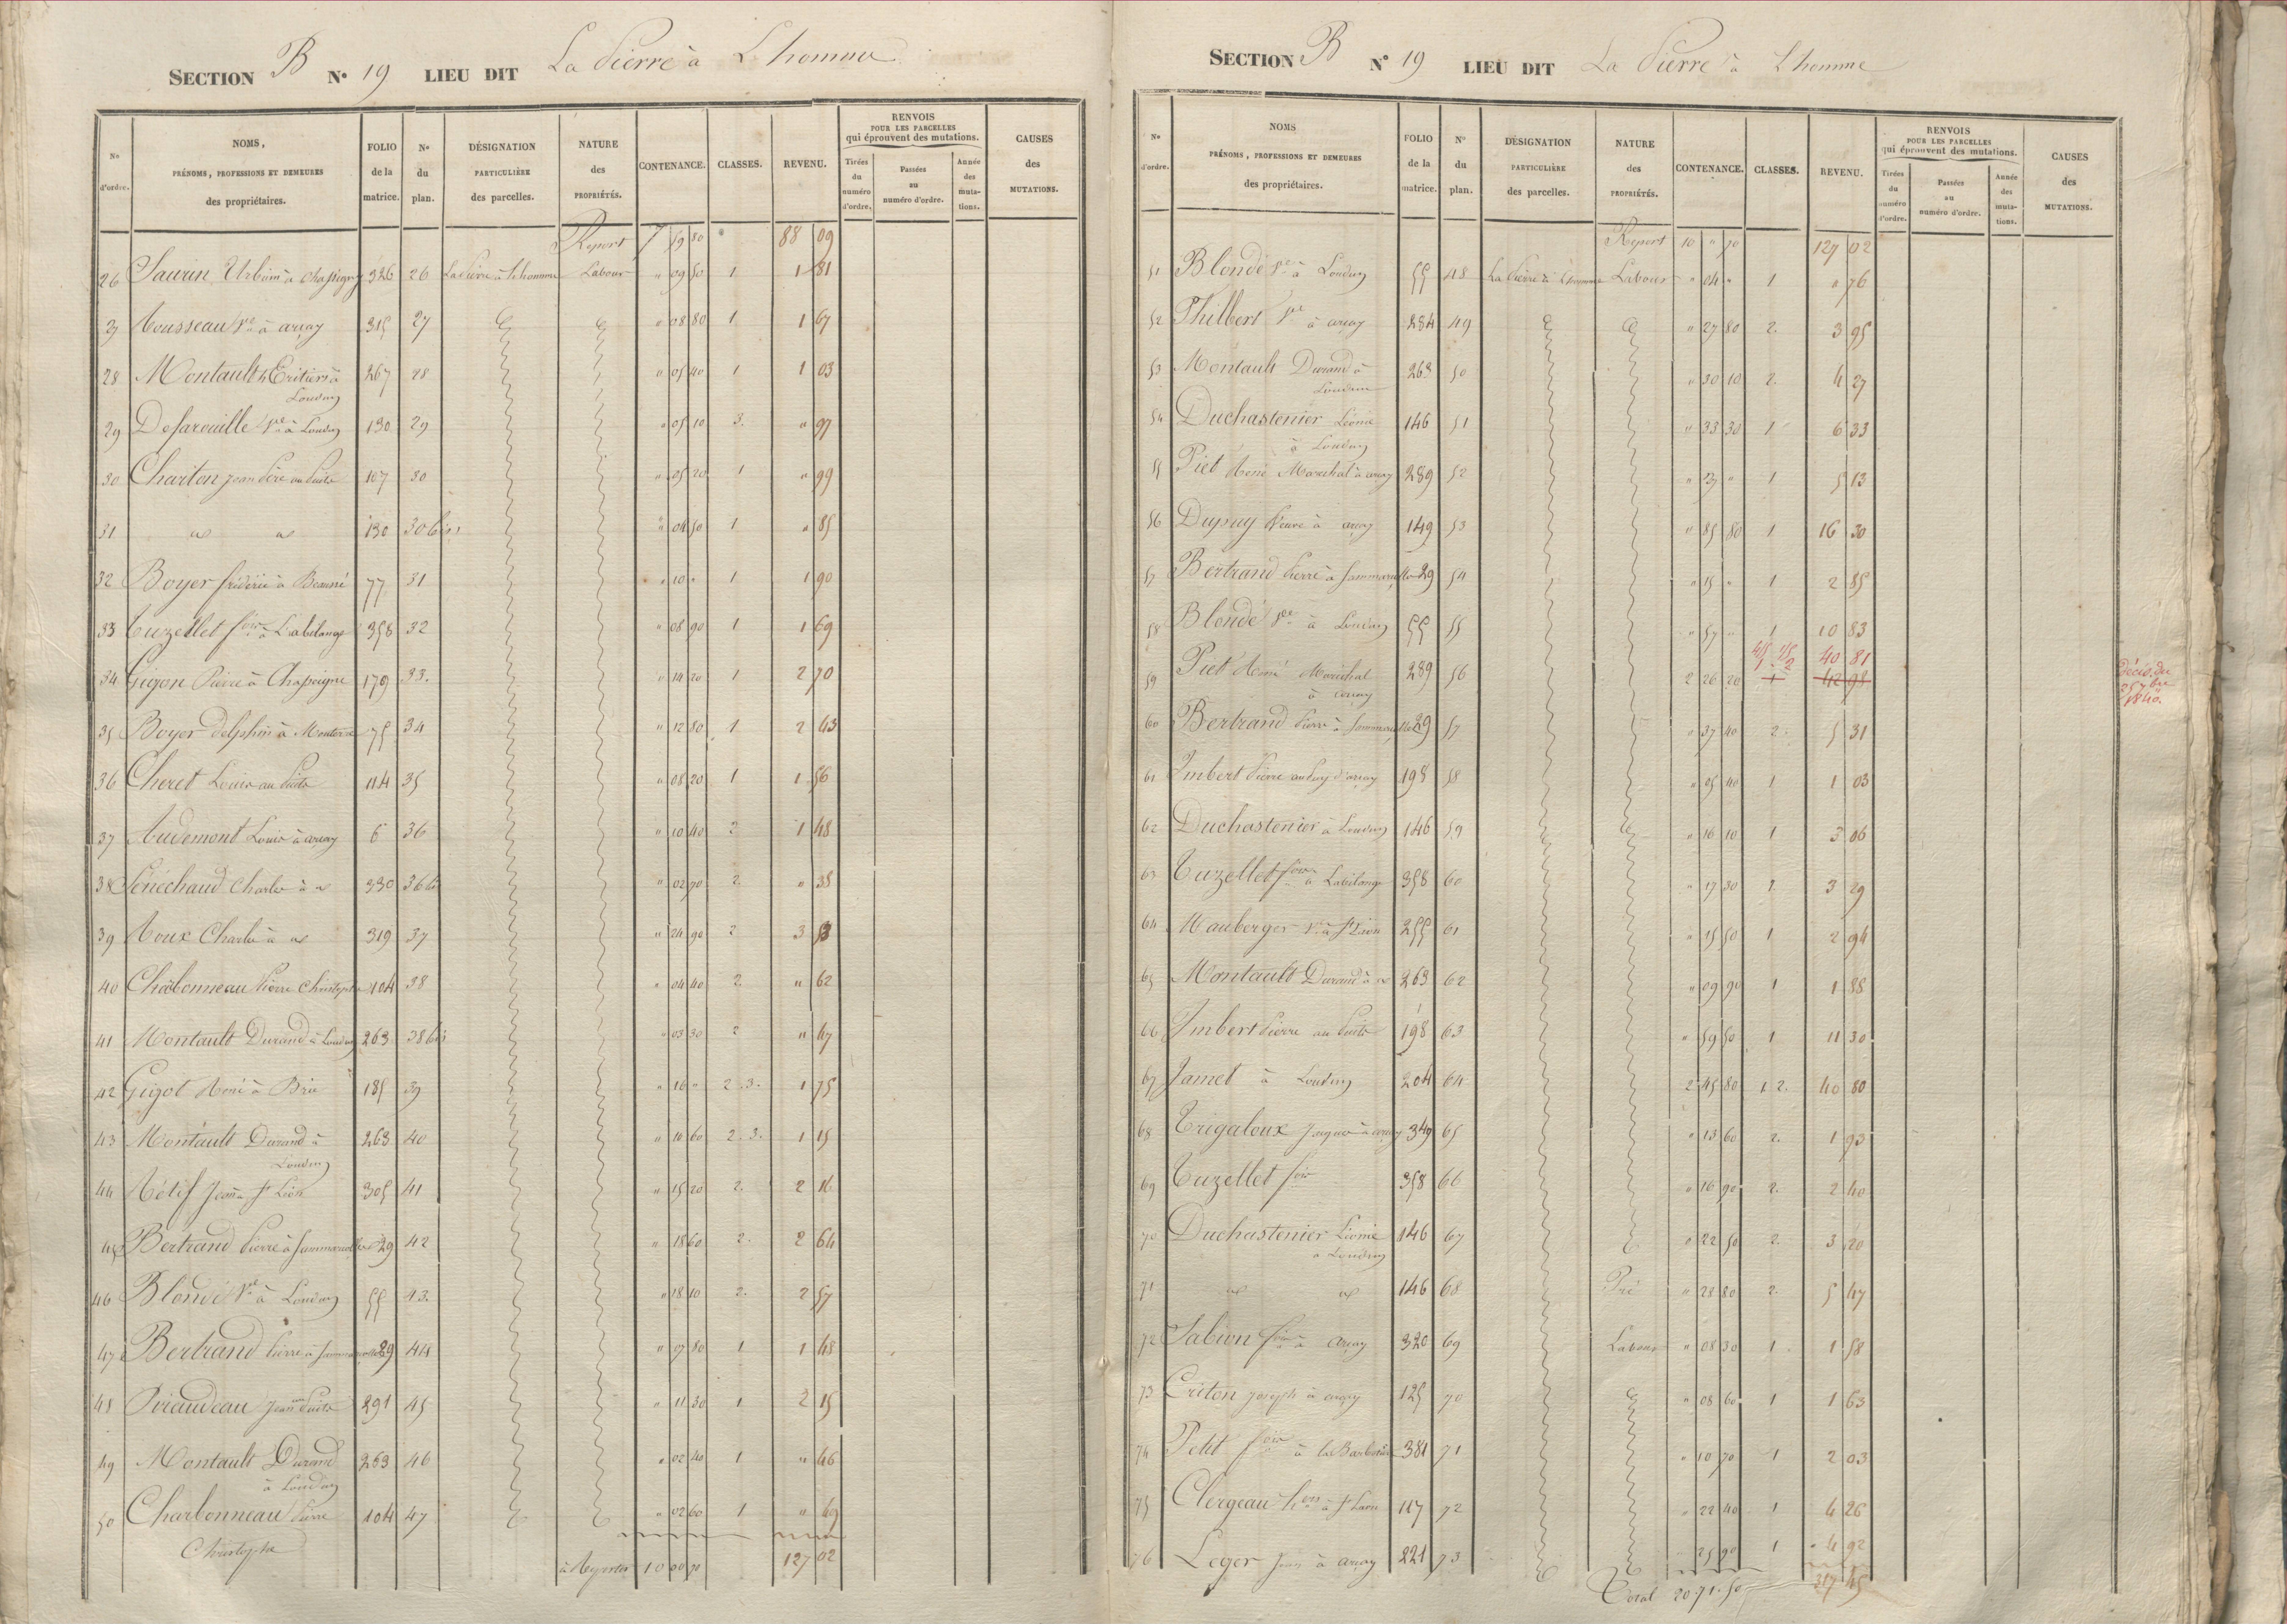 SECTION B N° 19 LIEU DIT La Pierre à L'homme
N° d'ordre. NOMS, PRÉNOMS, PROFESSIONS ET DEMEURES des propriétaires. FOLIO de la matrice. N° du plan. DÉSIGNATION PARTICULIÈRE des parcelles. NATURE des PROPRIÉTÉS. CONTENANCE. CLASSES. REVENU. RENVOIS POUR LES PARCELLES qui éprouvent des mutations. Tirées du numéro d'ordre. Passées au numéro d'ordre. Année des mutations. CAUSES des MUTATIONS.
Report 7 59 80 88 09
26 Saurin Urbain à Chassigny 326 26 La Pierre à l'homme Labour " 09 50 1 1 81
27 Rousseau Ve à arcay 315 27 " 08 80 1 1 67
28 Montault à Loudun 267 28 " 05 40 1 1 03
29 Ve à Loudun 130 29 " 05 10 3. " 97
30 Chariton Jean Père au Puits 107 30 " 05 20 1 " 99
31 " " 130 30 bis " 04 50 1 " 85
32 Boyer frédéric à 77 31 " 10 " 1 1 90
33 Tuzellet fois à Labilange 358 32 " 08 90 1 1 69
34 Gigon Pierre à 179 33. " 14 20 1 2 70
35 Boyer delphin à 75 34 " 12 80 1 2 43
36 Cheret Louis au Puits 114 35 " 08 20 1 1 56
37 Audemont Louis à arcay 6 36 " 10 40 2 1 48
38 Sénéchaud Charles à " 330 36 bis " 02 70 2 " 38
39 Roux Charles à " 319 37 " 24 90 2 3 53
40 Chabonneau Pierre Christophe 104 38 " 04 40 2 " 62
41 Montault Durand à Loudun 263 38 bis " 03 30 2 " 47
42 Gigot René à Brie 185 39 " 16 " 2.3. 1 75
43 Montault Durand à Loudun 263 40 " 10 60 2.3. 1 15
44 Rétif Jean à St Léon 305 41 " 15 20 2. 2 16
45 Bertrand Pierre à Sammarcolles 29 42 " 18 60 2. 2 64
46 Blondé Ve à Loudun 55 43. " 18 10 2. 2 57
47 Bertrand Pierre à Sammarcolles 29 44 " 07 80 1 1 48
48 Piraudeau Jean au Puits 291 45 " 11 30 1 2 15
49 Montault Durand à Loudun 263 46 " 02 40 1 " 46
50 Charbonneau Pierre Christophe 104 47 " 02 60 1 " 49
à Reporter 10 00 70 127 02
SECTION B N° 19 LIEU DIT La Pierre à L'homme
N° d'ordre. NOMS PRÉNOMS, PROFESSIONS ET DEMEURES des propriétaires. FOLIO de la matrice. N° du plan. DÉSIGNATION PARTICULIÈRE des parcelles. NATURE des PROPRIÉTÉS. CONTENANCE. CLASSES. REVENU. RENVOIS POUR LES PARCELLES qui éprouvent des mutations. Tirées du numéro d'ordre. Passées au numéro d'ordre. Année des mutations. CAUSES des MUTATIONS.
Report 10 " 70 127 02
51 Blondé Ve à Loudun 55 48 La Pierre à l'homme Labour " 04 " 1 " 76
52 Philbert Ve à arcay 284 49 " 27 80 2. 3 95
53 Montault Durand à Loudun 263 50 " 30 10 2. 4 27
54 Duchastenier Léonie à Loudun 146 51 " 33 30 1 6 33
55 Piet René Maréchal à arcay 289 52 " 27 " 1 5 13
56 Dupuy Veuve à arcay 149 53 " 85 80 1 16 30
57 Bertrand Pierre à Sammarcolles 29 54 " 15 " 1 2 85
58 Blondé Ve à Loudun 55 55 " 57 " 1 10 83
4/5 1/5 40 81
59 Piet René Maréchal à arcay 289 56 2 26 20 1 2 42 98
décis. du 25 7bre 1840.
60 Bertrand Pierre à Sammarcolles 29 57 " 37 40 2. 5 31
61 Imbert Pierre au Puy d'arcay 198 58 " 05 40 1 1 03
62 Duchastenier à Loudun 146 59 " 16 10 1 3 06
63 Tuzellet fois à Labilange 358 60 " 17 30 1 3 29
64 Mauberger Ve à St Léon 255 61 " 15 50 1 2 94
65 Montault Durand à " 263 62 " 09 90 1 1 88
66 Imbert Pierre au Puits 198 63 " 59 50 1 11 30
67 Jamet à Loudun 204 64 2 45 80 1 2. 40 80
68 Trigaloux Jacques à arcay 349 65 " 13 60 2. 1 93
69 Tuzellet fois 358 66 " 16 90 2. 2 40
70 Duchastenier Léonie à Loudun 146 67 " 22 50 2. 3 20
71 " " 146 68 Pré " 28 80 2. 5 47
72 Sabion fois à arcay 320 69 Labour " 08 30 1 1 58
73 Criton Joseph à arcay 125 70 " 08 60 1 1 63
74 Petit fois à la 381 71 " 10 70 1 2 03
75 Clergeau hers à St Léon 117 72 " 22 40 1 4 26
76 Leger Jean à arcay 221 73 25 90 1 4 92
Total 20.71.50 317 45